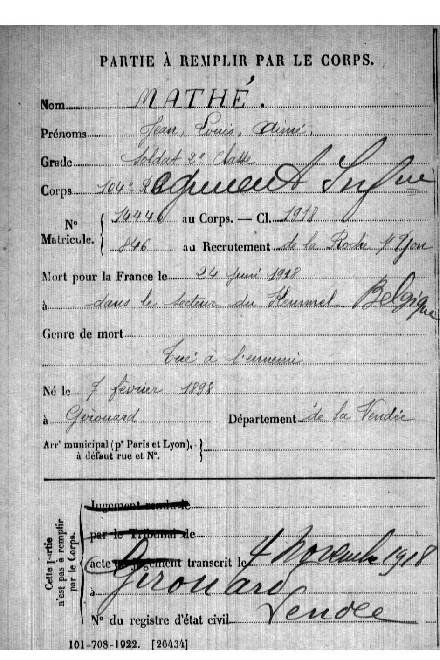 PARTIE À REMPLIR PAR LE CORPS.
Nom MATHÉ.
Prénoms Jean, Louis, Aimé.
Grade Soldat 2e Classe
Corps 104e Régiment Infie
N° Matricule. { 14446 au Corps. — Cl. 1918
846 au Recrutement de la Roche s/ Yon
Mort pour la France le 24 juin 1918
à dans le secteur du Kemmel Belgique
Genre de mort
Tué à l'ennemi
Né le 7 février 1898
à Girouard Département de la Vendée
Arrt municipal (pr Paris et Lyon), à défaut rue et N°. }
Cette partie n'est pas à remplir par le Corps.
Jugement rendu le
par le Tribunal de
acte ou jugement transcrit le 4 Novembre 1918
à Girouard
N° du registre d'état civil Vendée
101-708-1922. [26434]